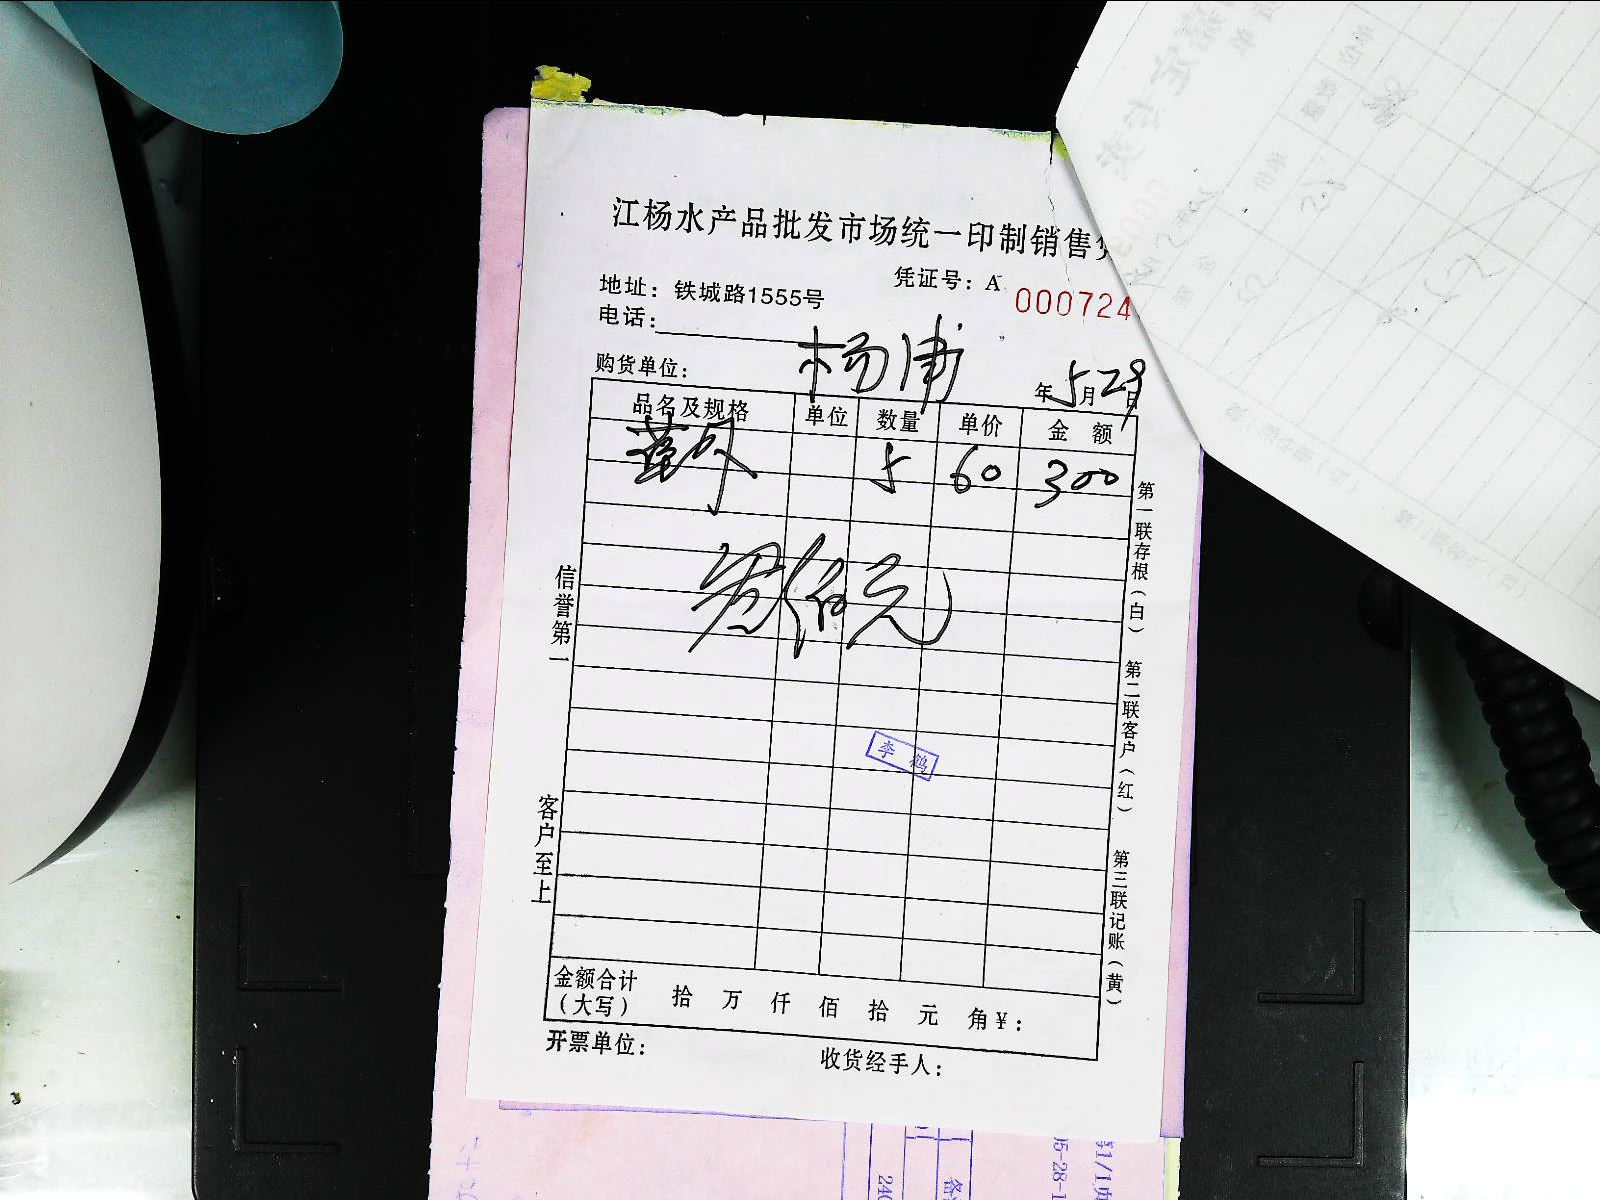 江杨水产品批发市场统一印制销售
凭证号：A 000724
地址：铁城路1555号
电话：
购货单位：杨浦
年5月29日
品名及规格 单位 数量 单价 金额
5 60 300
叁佰元
李鹤
信誉第一
客户至上
第一联存根（白） 第二联客户（红） 第三联记账（黄）
金额合计（大写） 拾 万 仟 佰 拾 元 角 ¥：
开票单位： 收货经手人：